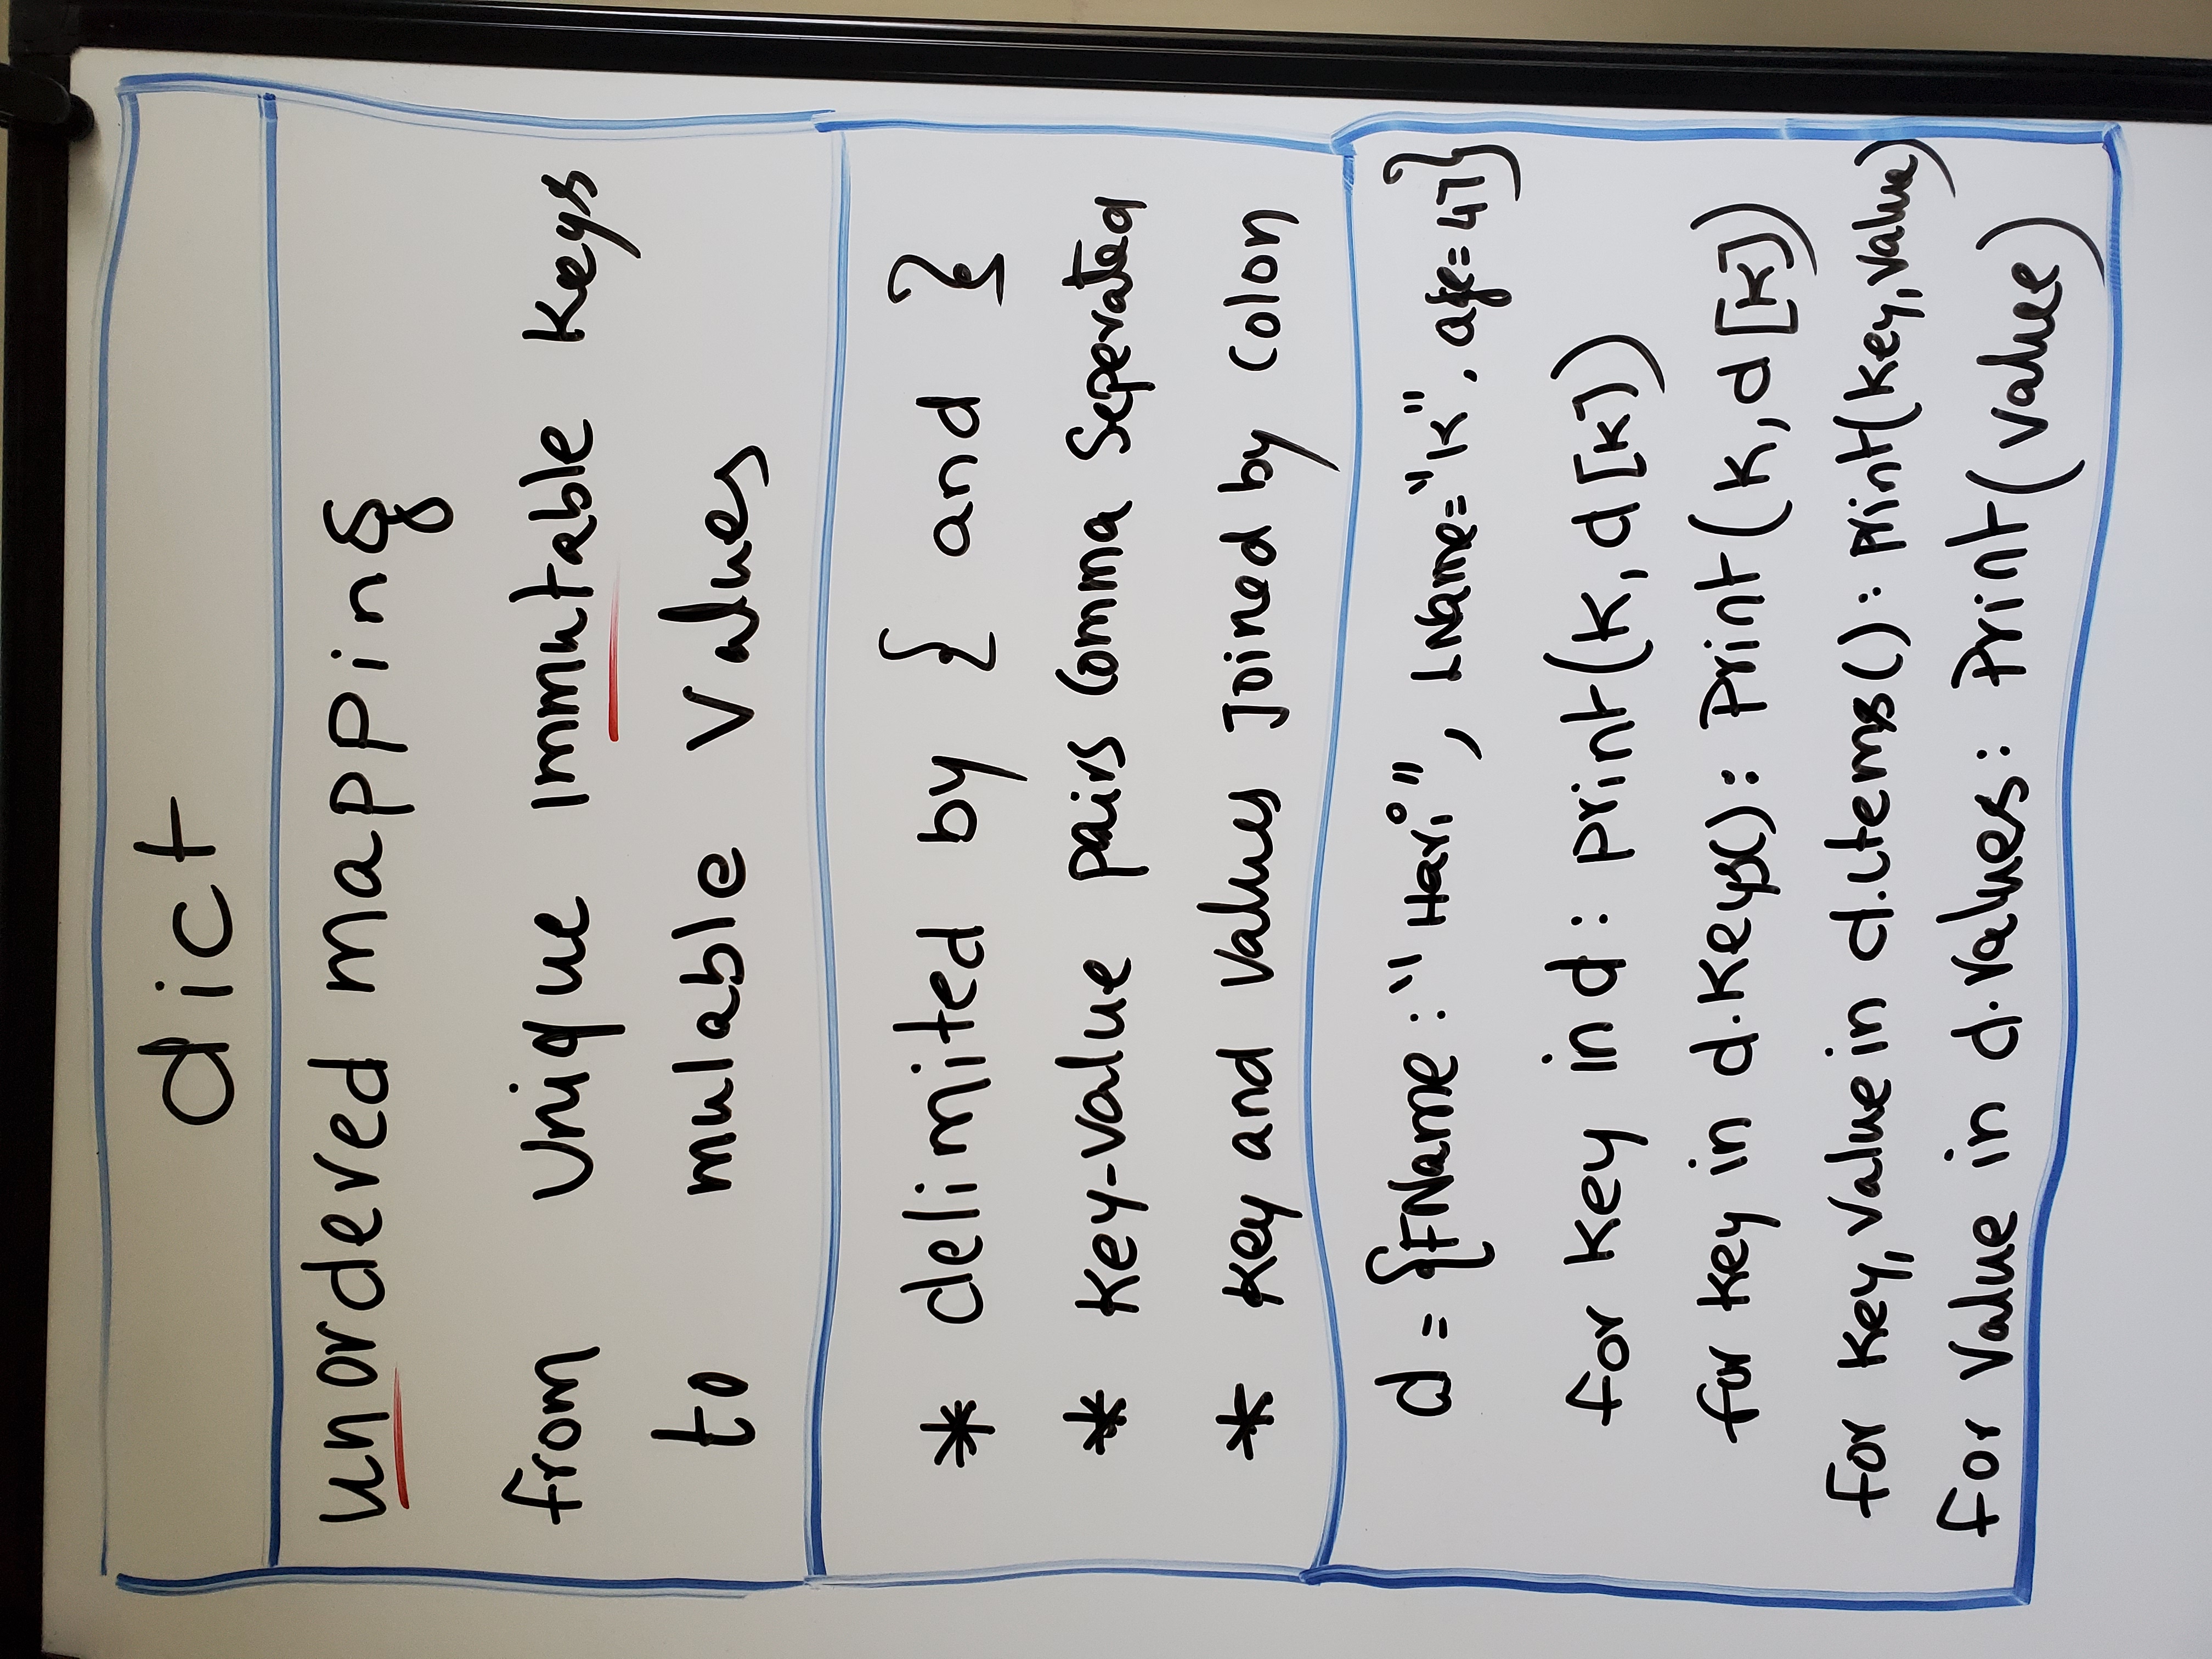 dict
unordered mapping
from Unique Immutable Keys
to mulable Values
* delimited by { and }
* Key-Value pairs Comma Seperated
* Key and Values Joined by Colon
d = {FName : "Hari", LName="K", age=47}
for key in d: print(k, d[k])
for key in d.keys(): Print(k, d[k])
for key, Value in d.items(): print(key, value)
for Value in d.values: Print(value)